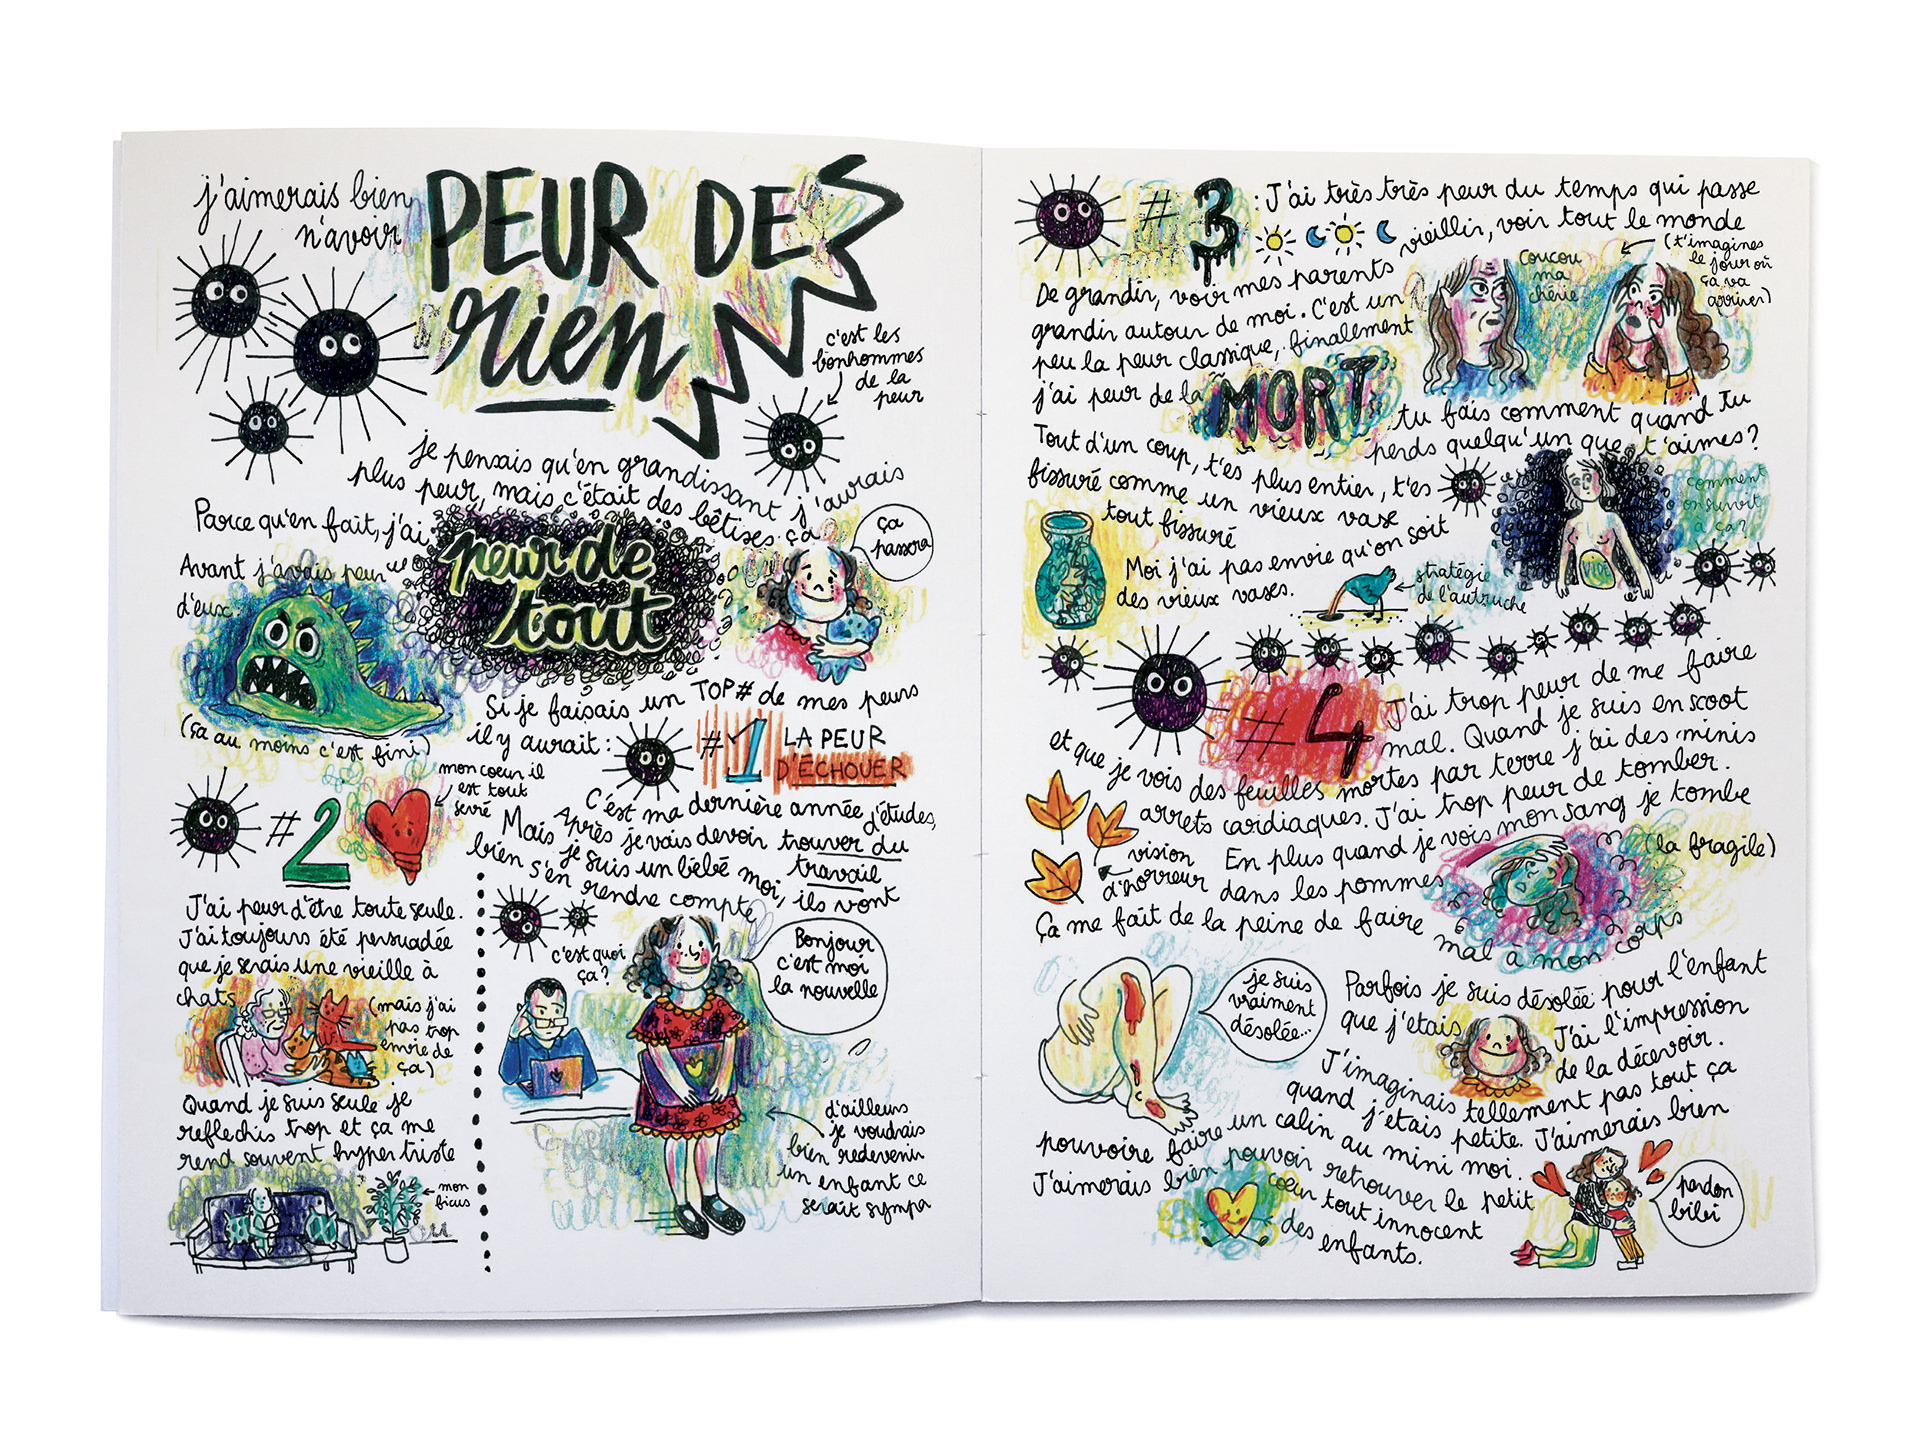 j'aimerais bien
n'avoir
PEUR DE
rien
c'est les
bonhommes
de la
peur
je pensais qu'en grandissant j'aurais
plus peur, mais c'était des bêtises. ça
Parce qu'en fait, j'ai
peur de
tout
ça
passera
Avant j'avais peur
d'eux
(ça au moins c'est fini)
Si je faisais un TOP# de mes peurs
il y aurait :
#1 LA PEUR
D'ÉCHOUER
C'est ma dernière année d'études,
Après je vais devoir trouver du
travail
Mais je suis un bébé moi, ils vont
bien s'en rendre compte
c'est quoi
ça?
Bonjour
c'est moi
la nouvelle
d'ailleurs
je voudrais
bien redevenir
un enfant ce
serait sympa
#2
mon coeur il
est tout
serré
J'ai peur d'être toute seule.
J'ai toujours été persuadée
que je serais une vieille à
chats
(mais j'ai
pas trop
envie de
ça)
Quand je suis seule je
reflechis trop et ça me
rend souvent hyper triste
mon
ficus
#3 : J'ai très très peur du temps qui passe
De grandir, voir mes parents vieillir, voir tout le monde
grandir autour de moi. C'est un
peu la peur classique, finalement
j'ai peur de la MORT
coucou
ma
chérie
(t'imagines
le jour où
ça va
arriver)
tu fais comment quand tu
perds quelqu'un que t'aimes?
Tout d'un coup, t'es plus entier, t'es
fissuré comme un vieux vase
tout fissuré
Moi j'ai pas envie qu'on soit
des vieux vases.
stratégie
de l'autruche
comment
on survit
à ça?
VIDE
#4
J'ai trop peur de me faire
mal. Quand je suis en scoot
et que je vois des feuilles mortes par terre j'ai des minis
arrets cardiaques. J'ai trop peur de tomber.
vision
d'horreur
En plus quand je vois mon sang je tombe
dans les pommes
(la fragile)
Ça me fait de la peine de faire
mal à mon corps
je suis
vraiment
désolée...
Parfois je suis désolée pour l'enfant
que j'etais
J'ai l'impression
de la décevoir.
J'imaginais tellement pas tout ça
quand j'étais petite. J'aimerais bien
pouvoire faire un calin au mini moi.
J'aimerais bien pouvoir retrouver le petit
coeur tout innocent
des enfants.
pardon
bibi